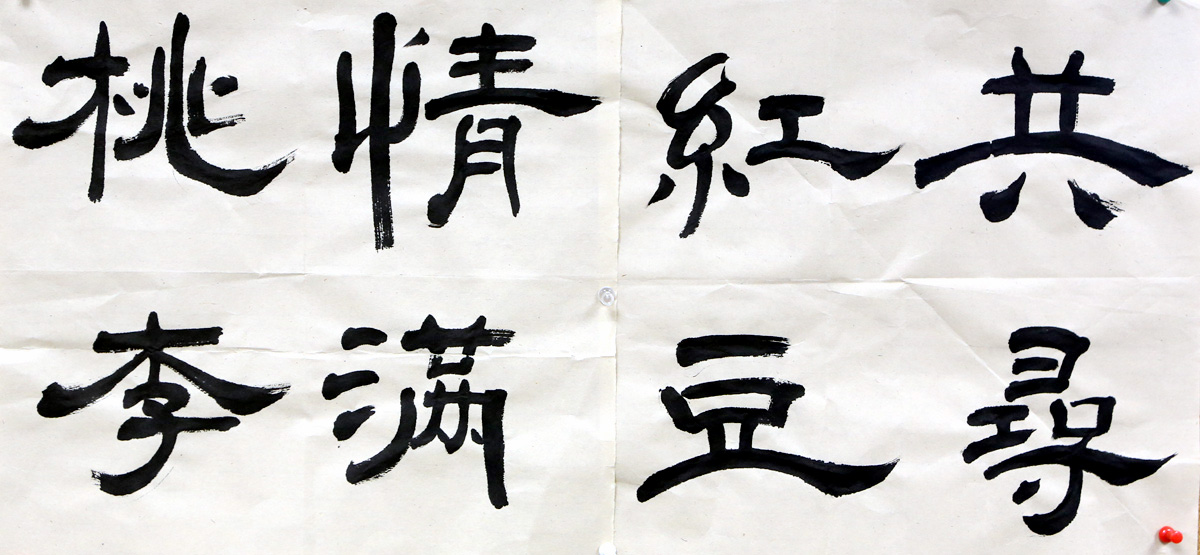 共尋
紅豆
情滿
桃李